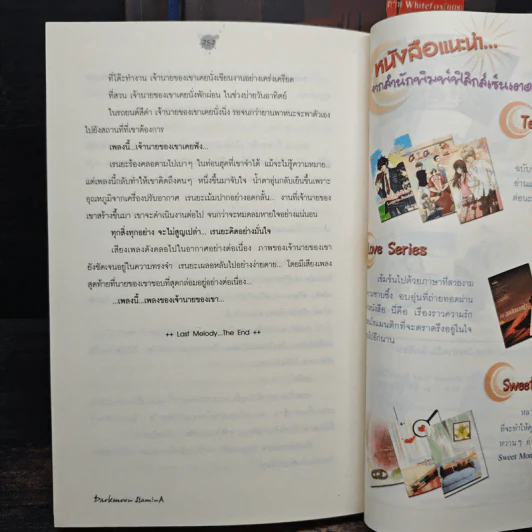 ภาพ Whitefox
252
ที่โต๊ะทำงาน เจ้านายของเขาเคยนั่งเขียนงานอย่างเคร่งเครียด
ที่สวน เจ้านายของเขาเคยนั่งพักผ่อน ในช่วงบ่ายวันอาทิตย์
ในรถยนต์สีดำ เจ้านายของเขาเคยนั่งนิ่ง รอจนกว่ายานพาหนะจะพาตัวเอง
ไปยังสถานที่ที่เขาต้องการ
เพลงนี้...เจ้านายของเขาเคยฟัง...
เรนยะร้องคลอตามไปเบาๆ ในท่อนฮุคที่เขาจำได้ แม้จะไม่รู้ความหมาย...
แต่เพลงนี้กลับทำให้เขาคิดถึงคนๆ หนึ่งขึ้นมาจับใจ น้ำตาอุ่นกลับเย็นขึ้นเพราะ
อุณหภูมิจากเครื่องปรับอากาศ เรนยะเม้มปากอย่างอดกลั้น... งานที่เจ้านายของ
เขาสร้างขึ้นมา เขาจะดำเนินงานต่อไป จนกว่าจะหมดลมหายใจอย่างแน่นอน
ทุกสิ่งทุกอย่าง จะไม่สูญเปล่า... เรนยะคิดอย่างมั่นใจ
เสียงเพลงดังคลอไปในอากาศอย่างต่อเนื่อง ภาพของเจ้านายของเขา
ยังชัดเจนอยู่ในความทรงจำ เรนยะเผลอหลับไปอย่างง่ายดาย... โดยมีเสียงเพลง
สุดท้ายที่นายของเขาชอบที่สุดกล่อมอยู่อย่างต่อเนื่อง...
...เพลงนี้...เพลงของเจ้านายของเขา...
++ Last Melody...The End ++
Darkmoon StaminA
หนังสือแนะนำ...
จากสำนักพิมพ์ฟิสิกส์เซ็นเตอ
Te
ฉบับ
อ่านแ
ต่อนะ
Love Series
เข้มข้นไปด้วยภาษาที่สวยงาม
วาบซึ้ง อบอุ่นที่ถ่ายทอดผ่าน
หนังสือ นี่คือ เรื่องราวความรัก
แมนติกที่จะตราตรึงอยู่ในใจ
ไปอีกนาน
Sweet
หลา
ที่จะทำให้คุ
หวานๆ
Sweet Mom